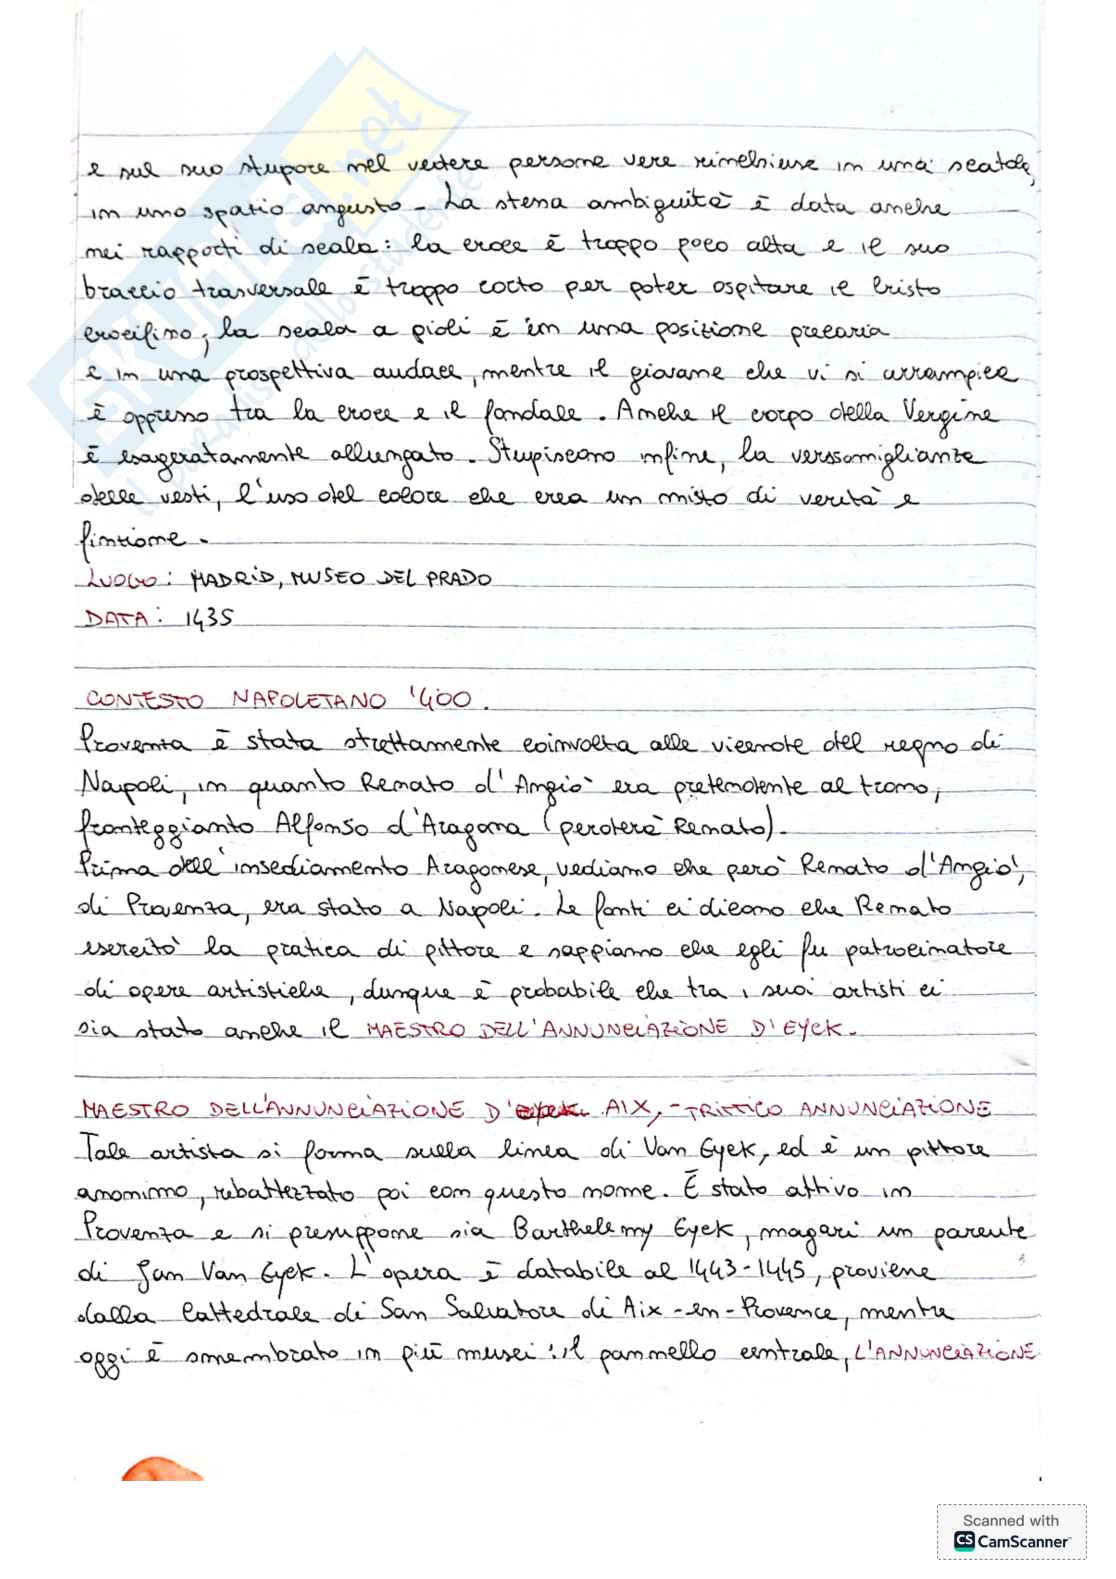 e sul suo stupore nel vedere persone vere rinchiuse in una scatola,
in uno spazio angusto. La stessa ambiguità è data anche
nei rapporti di scala: la croce è troppo poco alta e il suo
braccio trasversale è troppo corto per poter ospitare il Cristo
crocifisso; la scala a pioli è in una posizione precaria
e in una prospettiva audace, mentre il giovane che vi si arrampica
è oppresso tra la croce e il fondale. Anche il corpo della Vergine
è esageratamente allungato. Stupiscono infine, la verosomiglianza
delle vesti, l'uso del colore che crea un misto di verità e
finzione.
LUOGO: MADRID, MUSEO DEL PRADO
DATA: 1435
CONTESTO NAPOLETANO '400.
Provenza è stata strettamente coinvolta alle vicende del regno di
Napoli, in quanto Renato d'Angiò era pretendente al trono,
fronteggianto Alfonso d'Aragona (perderà Renato).
Prima dell'insediamento Aragonese, vediamo che però Renato d'Angiò,
di Provenza, era stato a Napoli. Le fonti ci dicono che Renato
esercitò la pratica di pittore e sappiamo che egli fu patrocinatore
di opere artistiche, dunque è probabile che tra i suoi artisti ci
sia stato anche il MAESTRO DELL'ANNUNCIAZIONE D'EYCK.
MAESTRO DELL'ANNUNCIAZIONE D' AIX, - TRITTICO ANNUNCIAZIONE
Tale artista si forma sulla linea di Van Eyck, ed è un pittore
anonimo, ribattezzato poi con questo nome. È stato attivo in
Provenza e si presuppone sia Barthelemy Eyck, magari un parente
di Jan Van Eyck. L'opera è databile al 1443-1445, proviene
dalla Cattedrale di San Salvatore di Aix-en-Provence, mentre
oggi è smembrato in più musei: il pannello centrale, L'ANNUNCIAZIONE
Scanned with
CS CamScanner